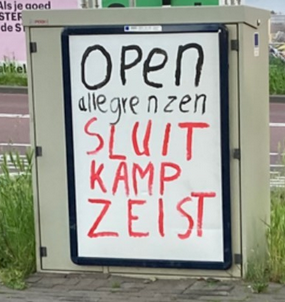 Als je goed
OPEN
alle grenzen
SLUIT
KAMP
ZEIST